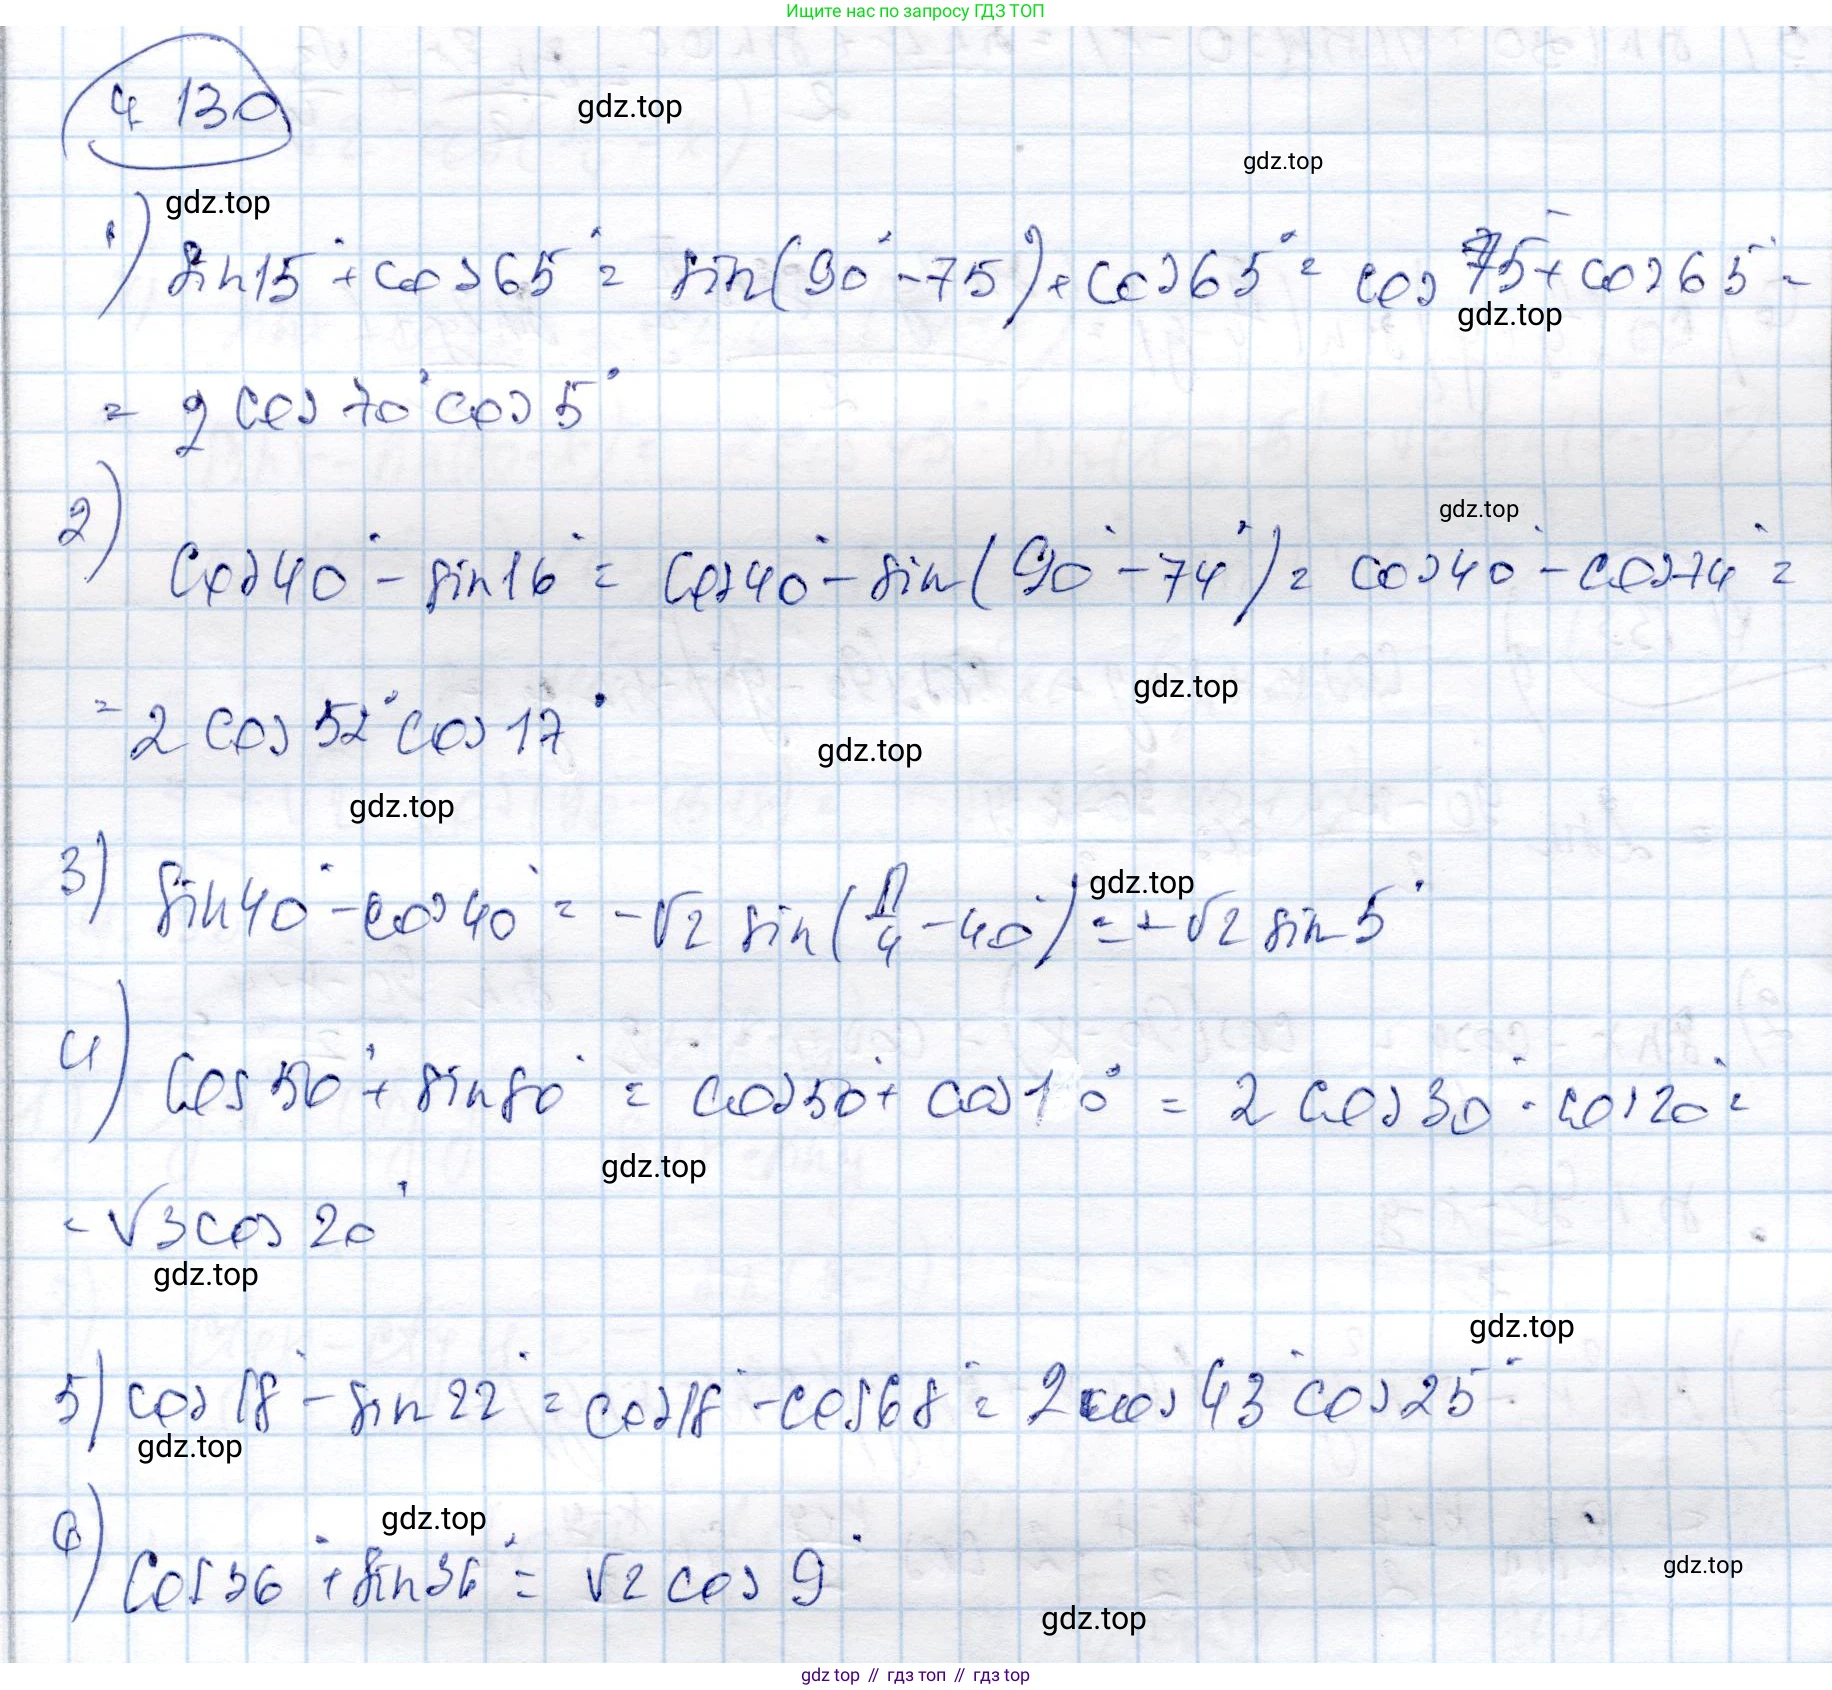 Ищите нас по запросу ГДЗ ТОП
4.130
gdz.top
gdz.top
gdz.top
1) sin15° + cos65° = sin(90° - 75°) + cos65° = cos75° + cos65° =
gdz.top
= 2 cos70° cos5°
gdz.top
2) cos40° - sin16° = cos40° - sin(90° - 74°) = cos40° - cos74° =
gdz.top
= 2 cos52° cos17°
gdz.top
gdz.top
gdz.top
3) sin40° - cos40° = -√2 sin(π/4 - 40°) = -√2 sin5°
4) cos50° + sin80° = cos50° + cos10° = 2 cos30° · cos20° =
gdz.top
= √3 cos20°
gdz.top
gdz.top
5) cos18° - sin22° = cos18° - cos68° = 2 cos43° cos25°
gdz.top
gdz.top
6) cos36° + sin36° = √2 cos9°
gdz.top
gdz.top
gdz top // гдз топ // гдз top